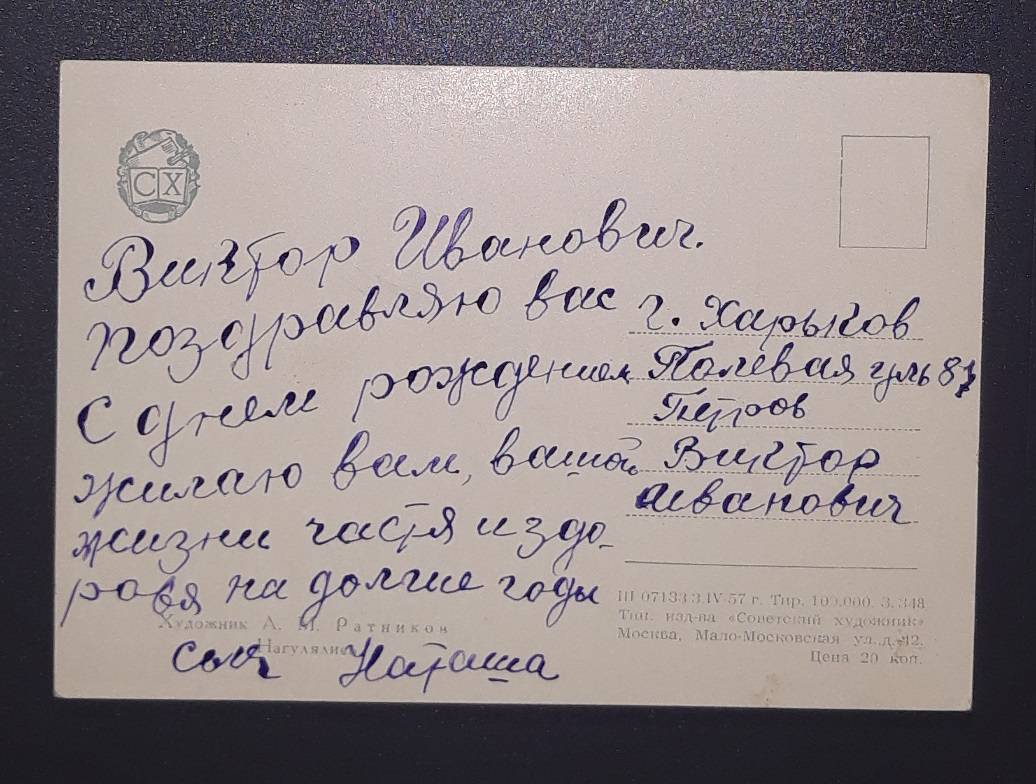 СХ
Виктор Иванович.
поздравляю вас
С днем рождением
жилаю вам, вашой
жизни частя и здо-
ровя на долгие годы
Наташа
г. Харьков
Полевая гуль 87
Петров
Виктор
Иванович
Художник А. М. Ратников
Нагулялись
Ш 07133 3.IV-57 г. Тир. 100.000. З. 348
Тип. изд-ва «Советский художник»
Москва, Мало-Московская ул. д. 12.
Цена 20 коп.